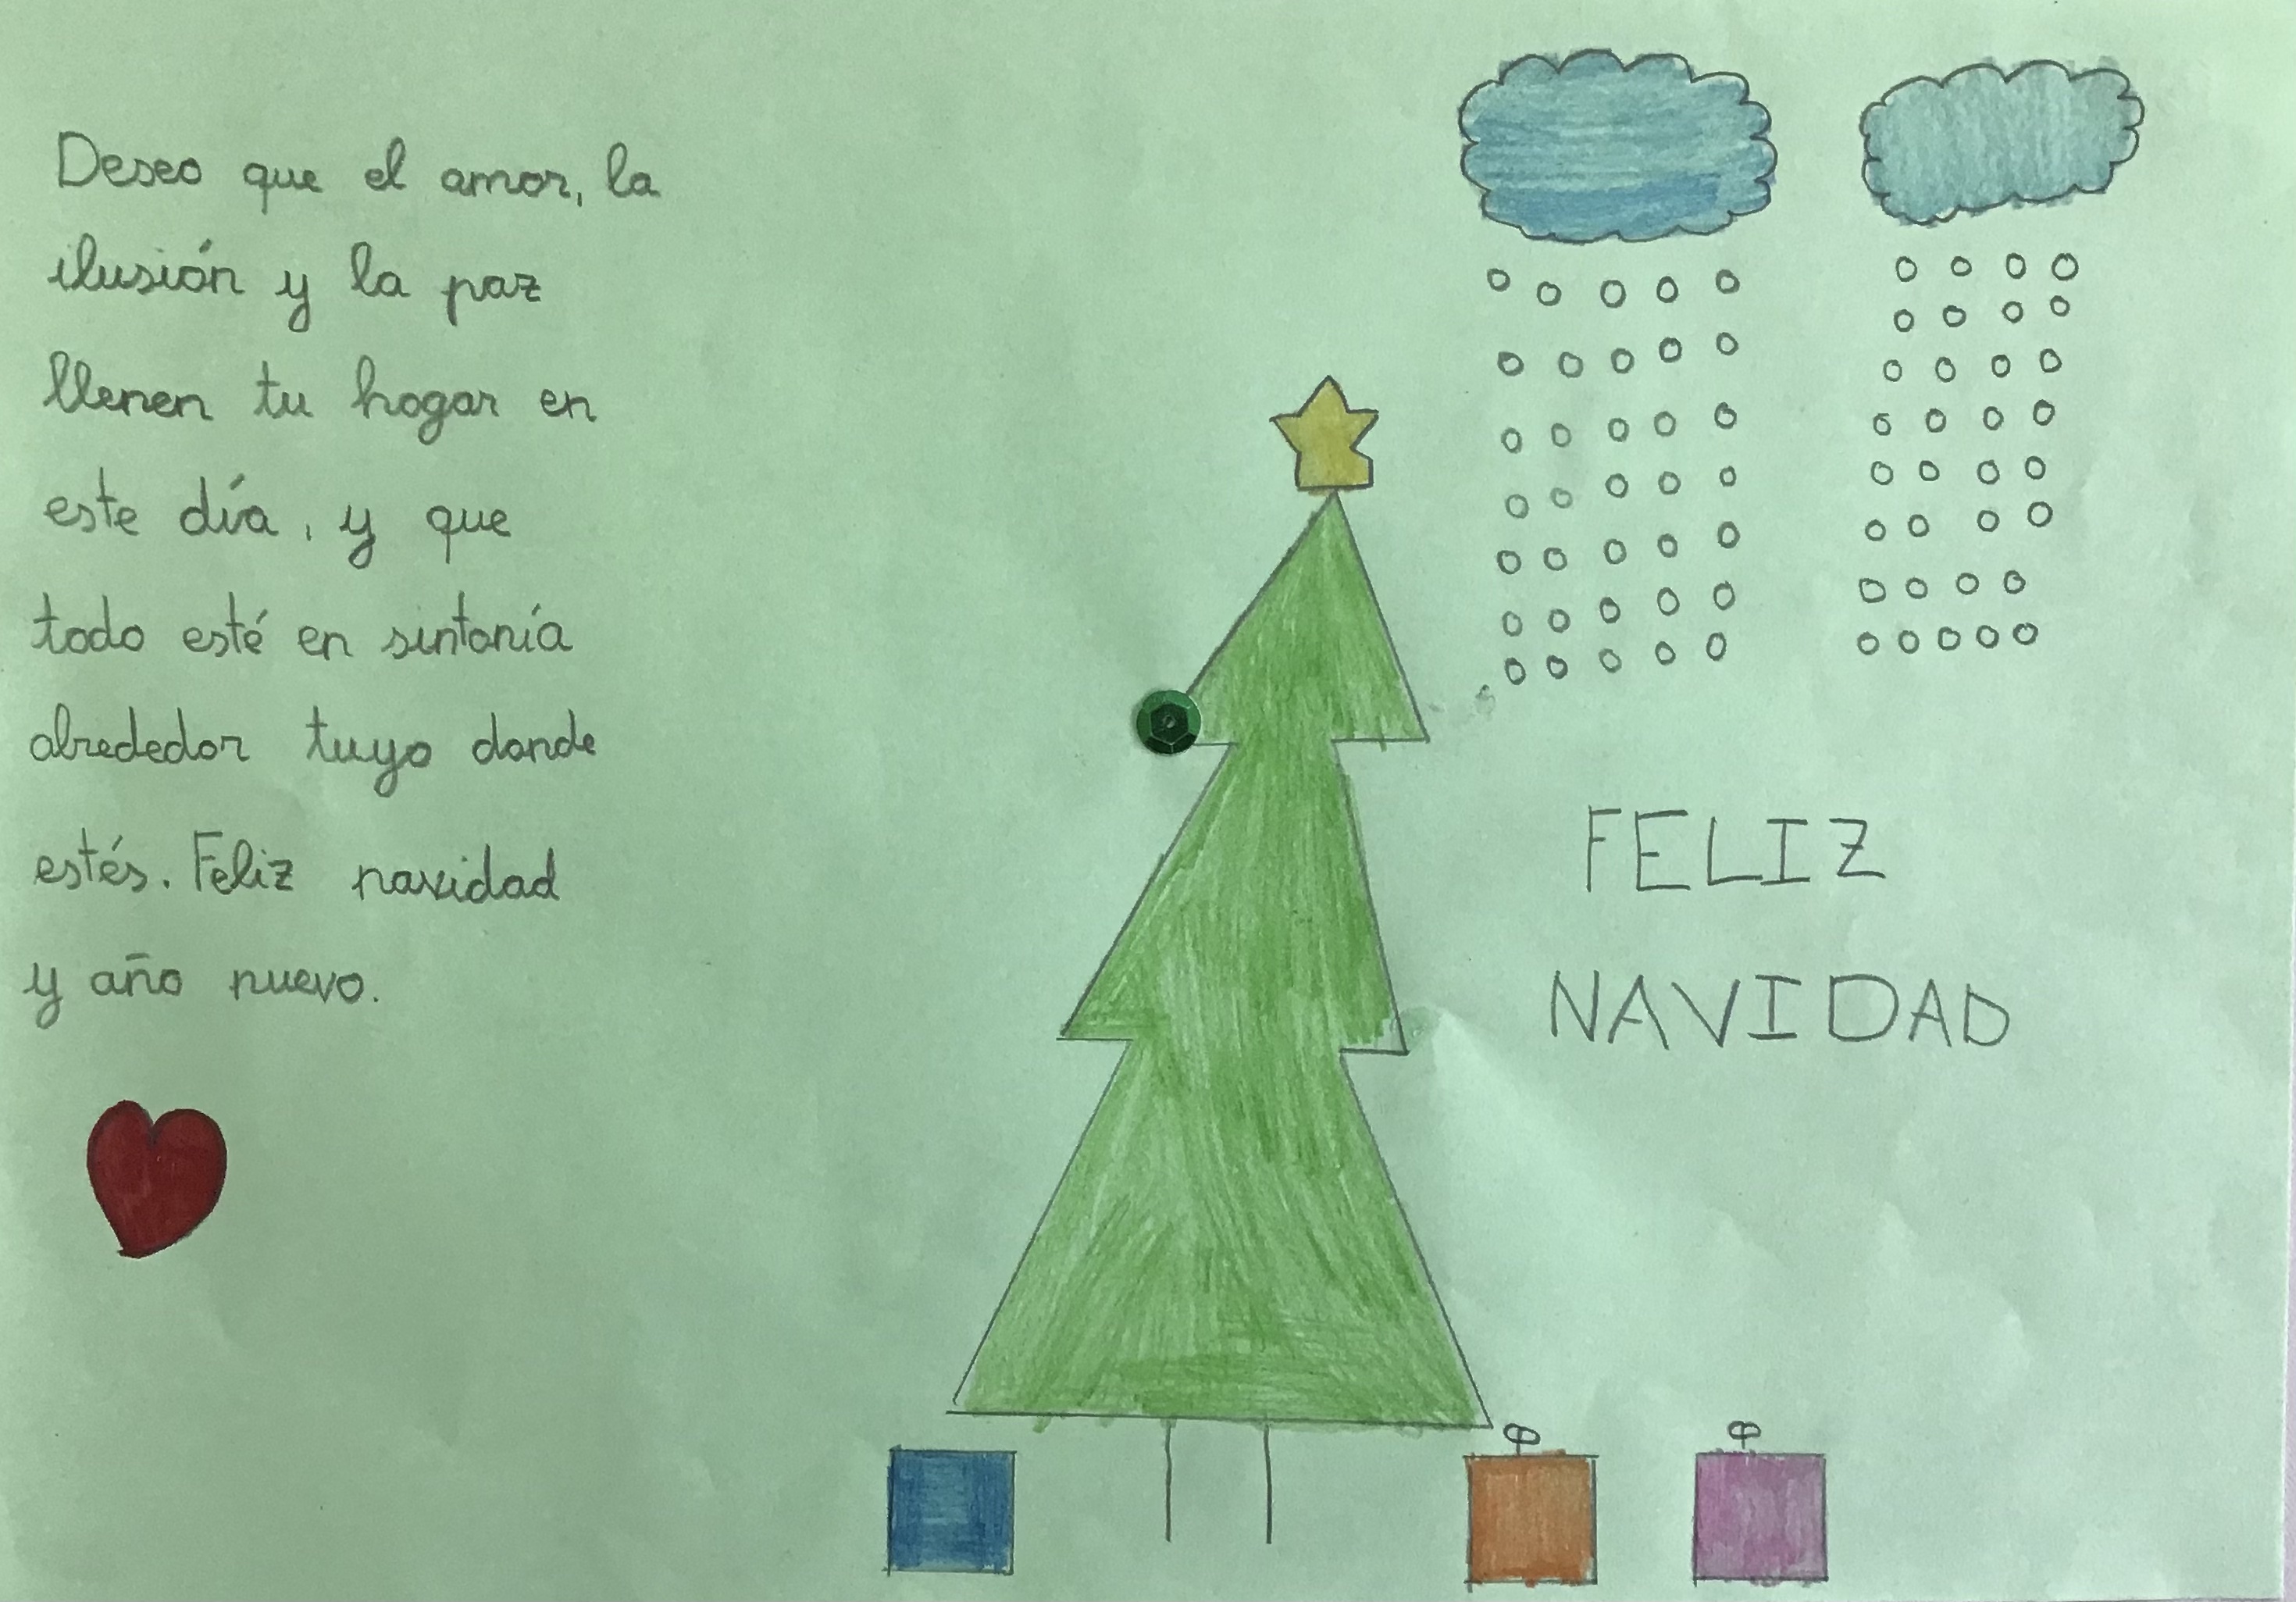 Deseo que el amor, la
ilusión y la paz
llenen tu hogar en
este día, y que
todo esté en sintonía
alrededor tuyo donde
estés. Feliz navidad
y año nuevo.
FELIZ
NAVIDAD